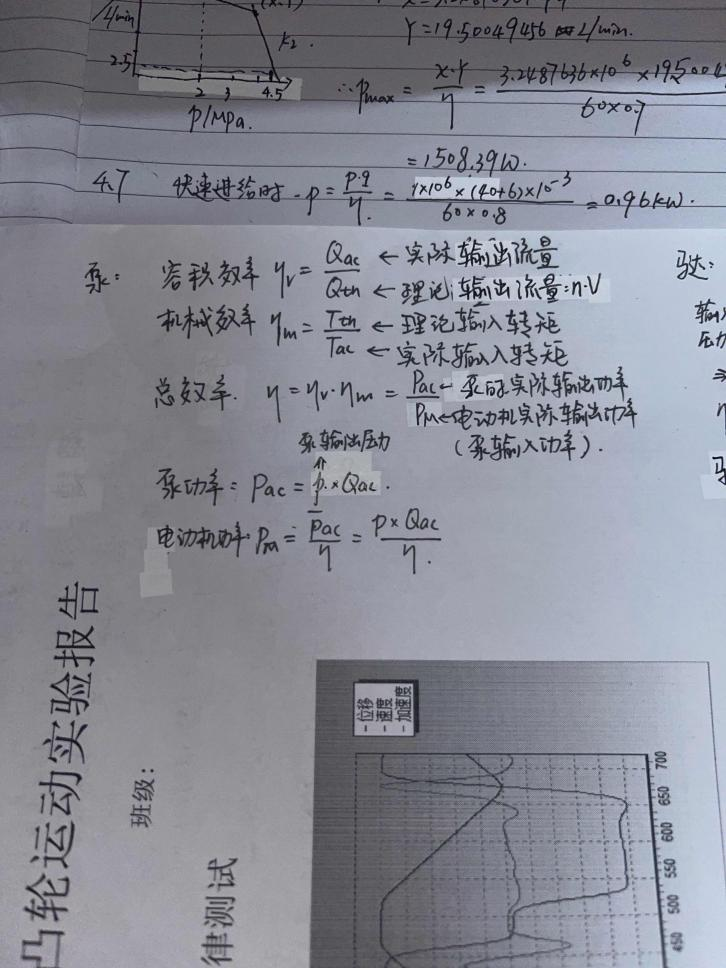 /min
2.5
2 3 4.5
p/MPa.
K₂.
Y=19.50049456 L/min.
∴Pmax = X·Y/η = 3.2487636×10⁶×19.5004/60×0.7
=1508.39W.
4.7 快速进给时 P = P·q/η = 1×10⁶×(40+6)×10⁻³/60×0.8 = 0.96kW.
泵:
容积效率 ηv = Qac/Qth ←实际输出流量 ←理论输出流量:n·V
机械效率 ηm = Tth/Tac ←理论输入转矩 ←实际输入转矩
总效率. η = ηv·ηm = Pac/PM ←泵的实际输出功率 ←电动机实际输出功率
(泵输入功率).
泵输出压力
⇑
泵功率: Pac = p.×Qac.
电动机功率 PM = Pac/η = P×Qac/η.
马达:
输
压力
凸轮运动实验报告
班级:
律测试
位移
速度
加速度
700
650
600
550
500
450